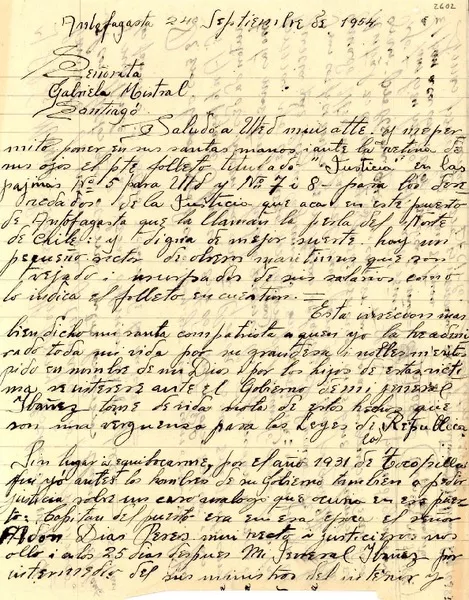 2602
Antofagasta 24 Septiembre de 1954
Señorita
Gabriela Mistral
Santiago
Saludo a Uted muy atte. y me per
mito poner en sus santas manos i ante la retina de
sus ojos el pte folleto titulado "Justicia" en las
pajinas Nº 5 para Utd y Nº 7 i 8 - para los des
de la Justicia que aca en este puesto
de Antofagasta que la llaman la perla del Norte
de Chile: y digna de mejor suerte, hay un
pequeño sector de obreros maritimos que son
vejado i usurpados de sus salarios como
lo indica el folleto en cuestion =
Esta
bien dicho mi santa compatriota a quien yo la he admi
rado toda mi vida por su grandesa i
pido en nombre de mi Dios por los hijos de esta vic
tima se interese ante el Gobierno de mi jeneral
Ibáñez tome devida nota de estos hechos que
son una verguenza para las Leyes de la República
Sin lugar a equibocarme, por el año 1931 de Tocopilla
fui yo antes los hombres de su Gobierno tambien a pedir
justicia sobre un caso analogo que ocurria en ese puer
to: Capitan del puerto era en esa epoca el señor
Adon Dias Peres muy recto i justiciero nos
ollo i a los 25 dias despues Mi Jeneral Ibañez por
intermedio del sus ministros del interior y